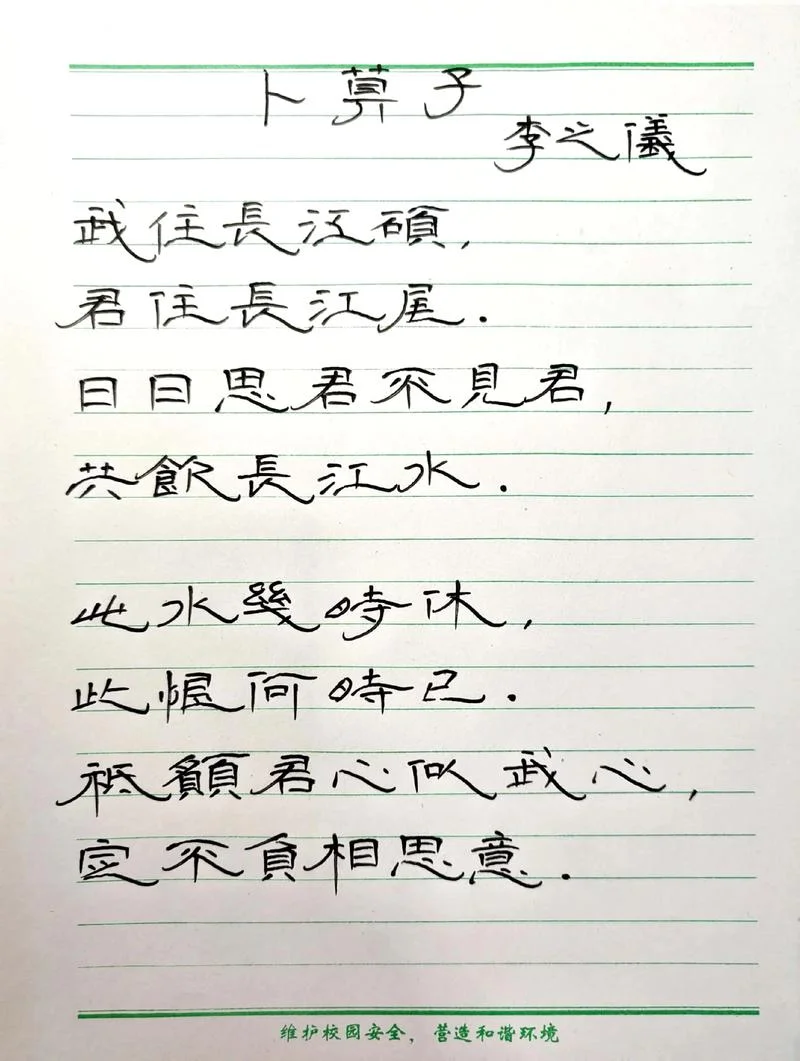 卜算子
李之儀
我住長江頭,
君住長江尾.
日日思君不見君,
共飲長江水.
此水幾時休,
此恨何時已.
祗願君心似我心,
定不負相思意.
维护校园安全，营造和谐环境